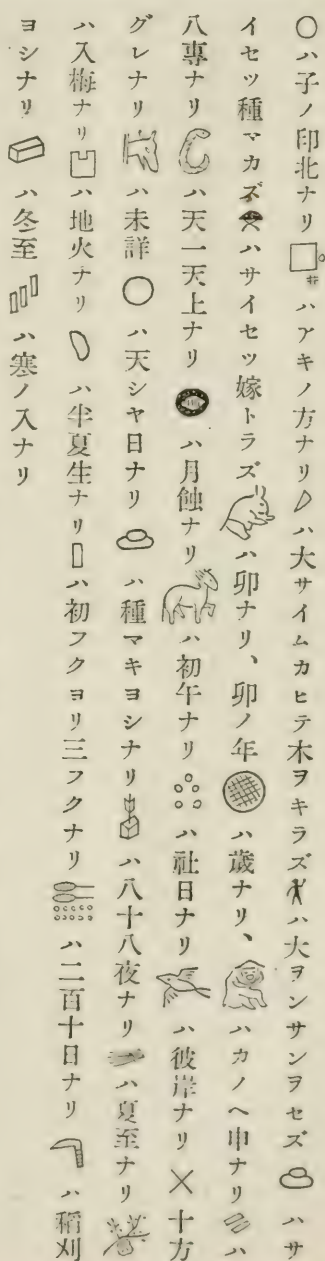 〇ハ子ノ印北ナリ ハアキノ方ナリ ハ大サイムカヒテ木ヲキラズ ハ大ヲンサンヲセズ ハサ
イセツ種マカズ ハサイセツ嫁トラズ ハ卯ナリ、卯ノ年 ハ歳ナリ、 ハカノヘ申ナリ ハ
八專ナリ ハ天一天上ナリ ハ月蝕ナリ ハ初午ナリ ハ社日ナリ ハ彼岸ナリ 十方
グレナリ ハ未詳 ハ天シヤ日ナリ ハ種マキヨシナリ ハ八十八夜ナリ ハ夏至ナリ
ハ入梅ナリ ハ地火ナリ ハ半夏生ナリ ハ初フクヨリ三フクナリ ハ二百十日ナリ ハ稲刈
ヨシナリ ハ冬至 ハ寒ノ入ナリ